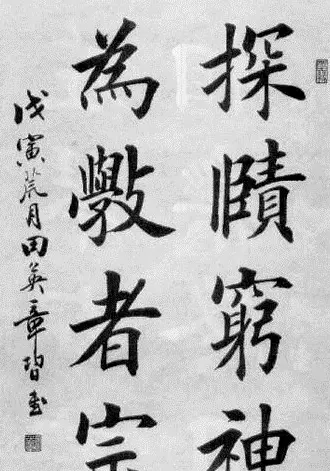 探賾窮神
為斆者宗
戊寅月田英章習書